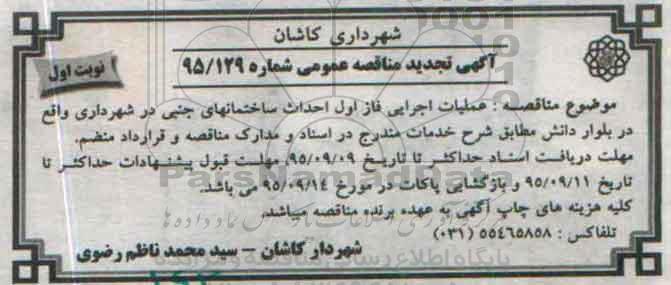 شهرداری کاشان
آگهی تجدید مناقصه عمومی شماره ۹۵/۱۲۹
نوبت اول
موضوع مناقصه : عملیات اجرایی فاز اول احداث ساختمانهای جنبی در شهرداری واقع
در بلوار دانش مطابق شرح خدمات مندرج در اسناد و مدارک مناقصه و قرارداد منضم.
مهلت دریافت اسناد حداکثر تا تاریخ ۹۵/۰۹/۰۹، مهلت قبول پیشنهادات حداکثر تا
تاریخ ۹۵/۰۹/۱۱ و بازگشایی پاکات در مورخ ۹۵/۰۹/۱۴ می باشد.
کلیه هزینه های چاپ آگهی به عهده برنده مناقصه میباشد.
تلفاکس : ۵۵۴۶۵۸۵۸ (۰۳۱)
شهردار کاشان – سید محمد ناظم رضوی
ParsNamadData